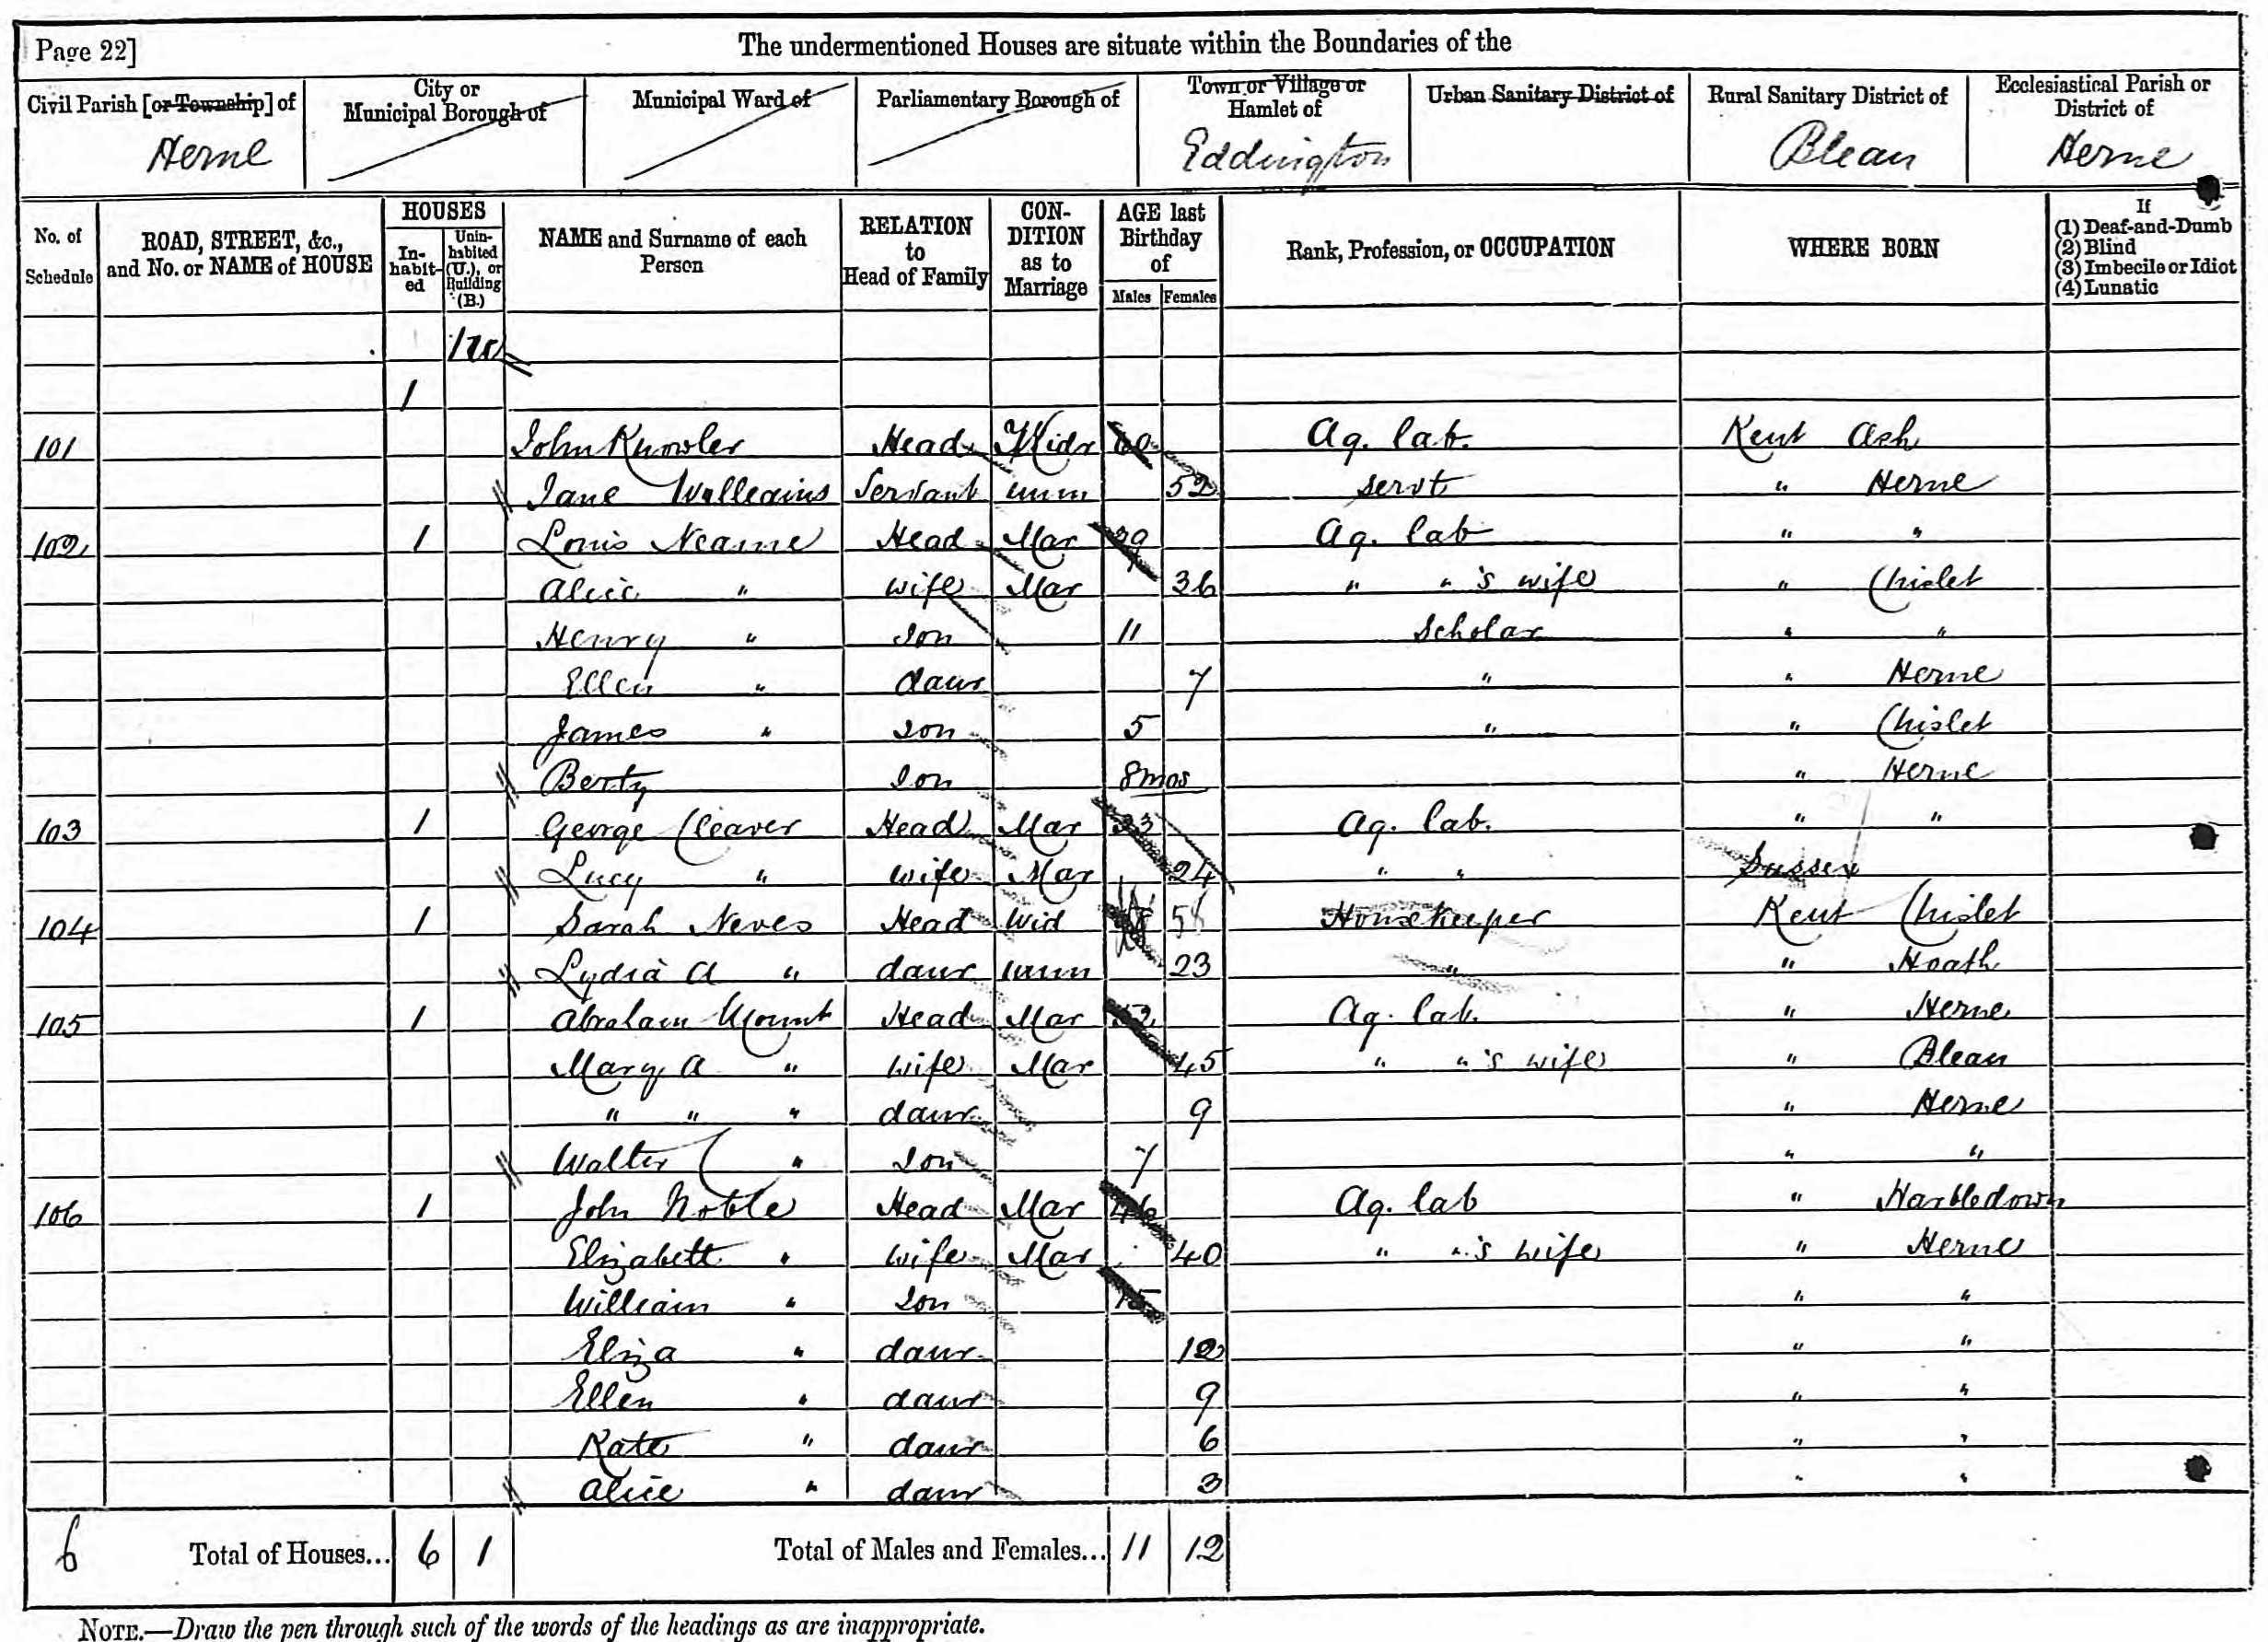 Page 22] The undermentioned Houses are situate within the Boundaries of the
Civil Parish [or Township] of City or Municipal Borough of Municipal Ward of Parliamentary Borough of Town or Village or Hamlet of Urban Sanitary District of Rural Sanitary District of Ecclesiastical Parish or District of
Herne Eddington Blean Herne
No. of Schedule ROAD, STREET, &c., and No. or NAME of HOUSE HOUSES In-habit-ed Unin-habited (U.), or Building (B.) NAME and Surname of each Person RELATION to Head of Family CON-DITION as to Marriage AGE last Birthday of Males Females Rank, Profession, or OCCUPATION WHERE BORN If (1) Deaf-and-Dumb (2) Blind (3) Imbecile or Idiot (4) Lunatic
1
1
101 John Knowler Head Widr 60 Ag. lab. Kent Ash
Jane Williams Servant unm 52 servt " Herne
102 1 Louis Neame Head Mar 39 Ag. lab " "
Alice " wife Mar 36 " " 's wife " Chislet
Henry " Son 11 Scholar " "
Ellen " daur 7 " " Herne
James " Son 5 " " Chislet
Berty Son 8 mos " Herne
103 1 George Cleaver Head Mar 23 Ag. lab. " "
Lucy " wife Mar 24 " " Sussex
104 1 Sarah Neves Head Wid 58 Housekeeper Kent Chislet
Lydia A " daur unm 23 " " Hoath
105 1 Abraham Mount Head Mar 52 Ag. lab. " Herne
Mary A " wife Mar 45 " " 's wife " Blean
" " " daur 9 " Herne
Walter " Son 7 " "
106 1 John Noble Head Mar 46 Ag. lab " Harbledown
Elizabeth " wife Mar 40 " " 's wife " Herne
William " Son 15 " "
Eliza " daur 12 " "
Ellen " daur 9 " "
Kate " daur 6 " "
Alice " daur 3 " "
6 Total of Houses... 6 1 Total of Males and Females... 11 12
NOTE.—Draw the pen through such of the words of the headings as are inappropriate.